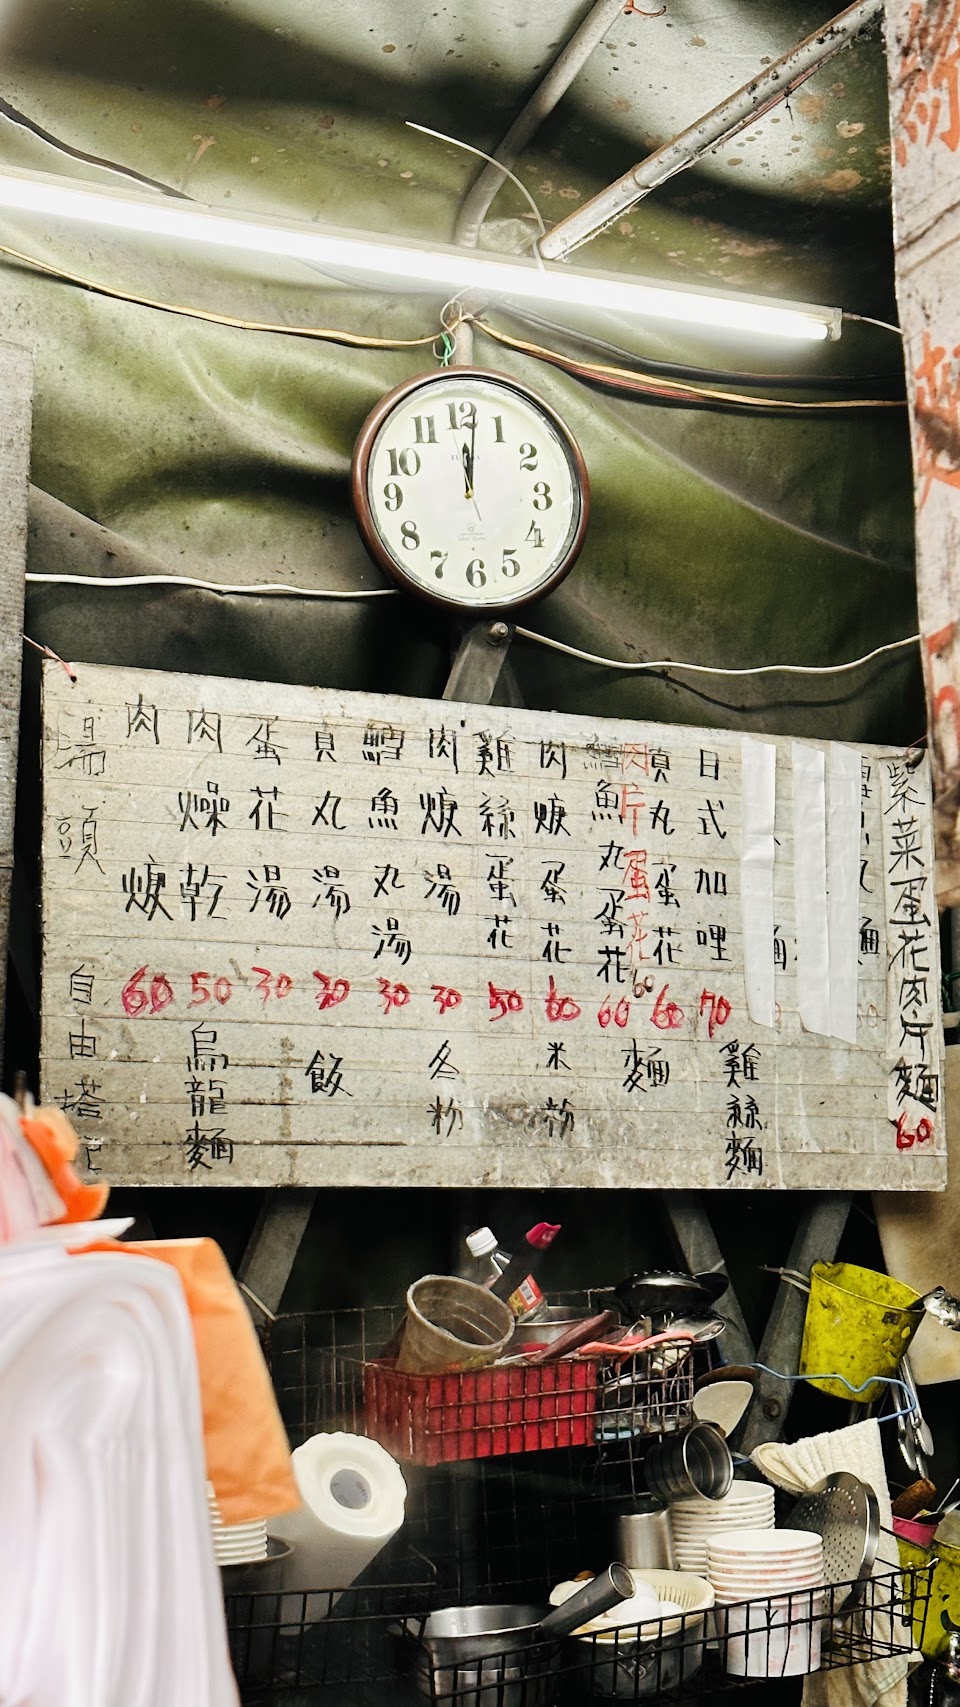 12
1
2
3
4
5
6
7
8
9
10
11
湯頭
自由搭
肉焿 60
肉燥乾 50
蛋花湯 30
貢丸湯 30
鱈魚丸湯 30
肉焿湯 30
雞絲蛋花 50
肉焿蛋花 60
鱈魚丸蛋花 60
肉片蛋花 60
貢丸蛋花 60
日式加哩 70
麵
麵
紫菜蛋花肉片麵 60
烏龍麵
飯
冬粉
米粉
麵
雞絲麵